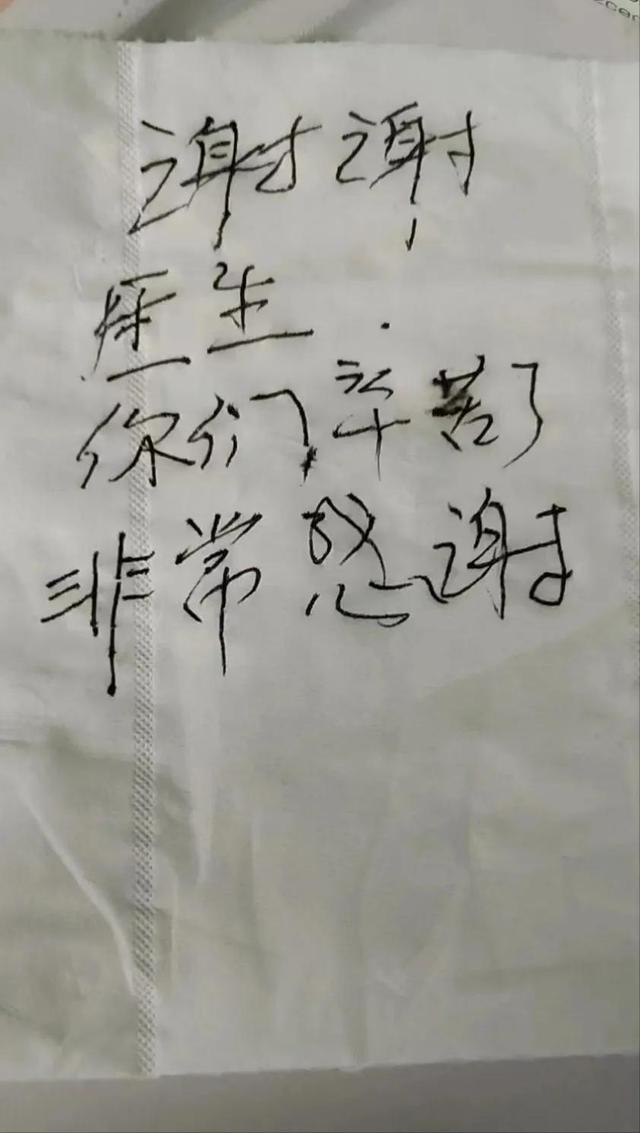 谢谢
医生.
你们辛苦了
非常感谢